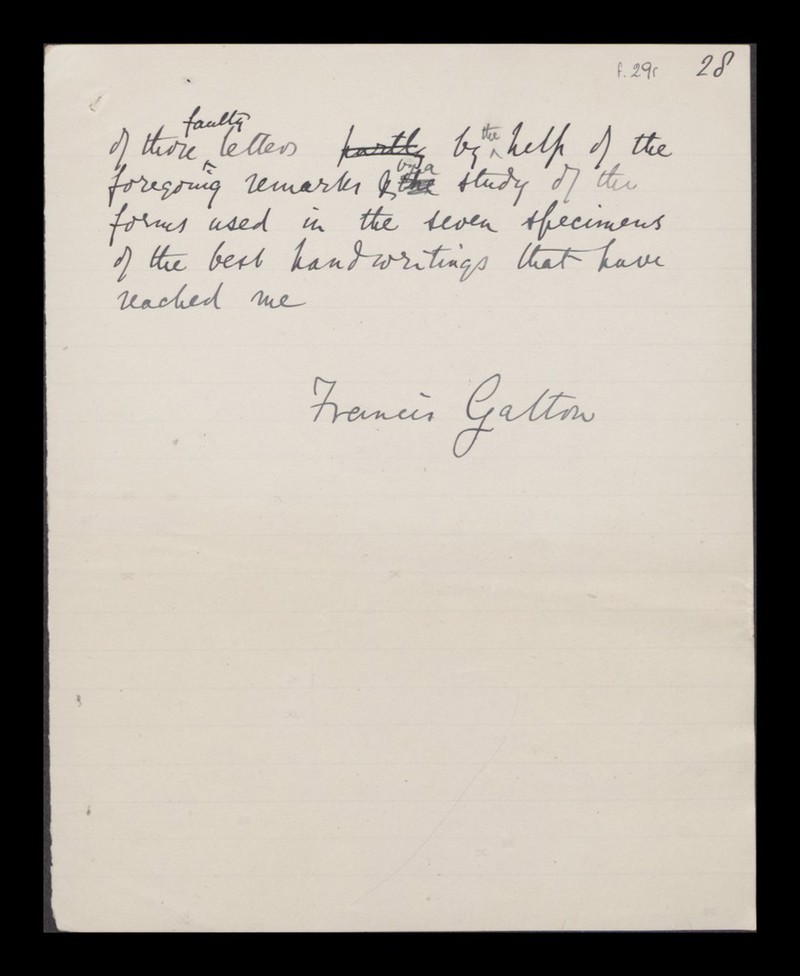 f. 29r 28
faulty
of those letters partly by the help of the
by a
foregoing remarks & the study of the
forms used in the seven specimens
of the best handwritings that have
reached me
Francis Galton